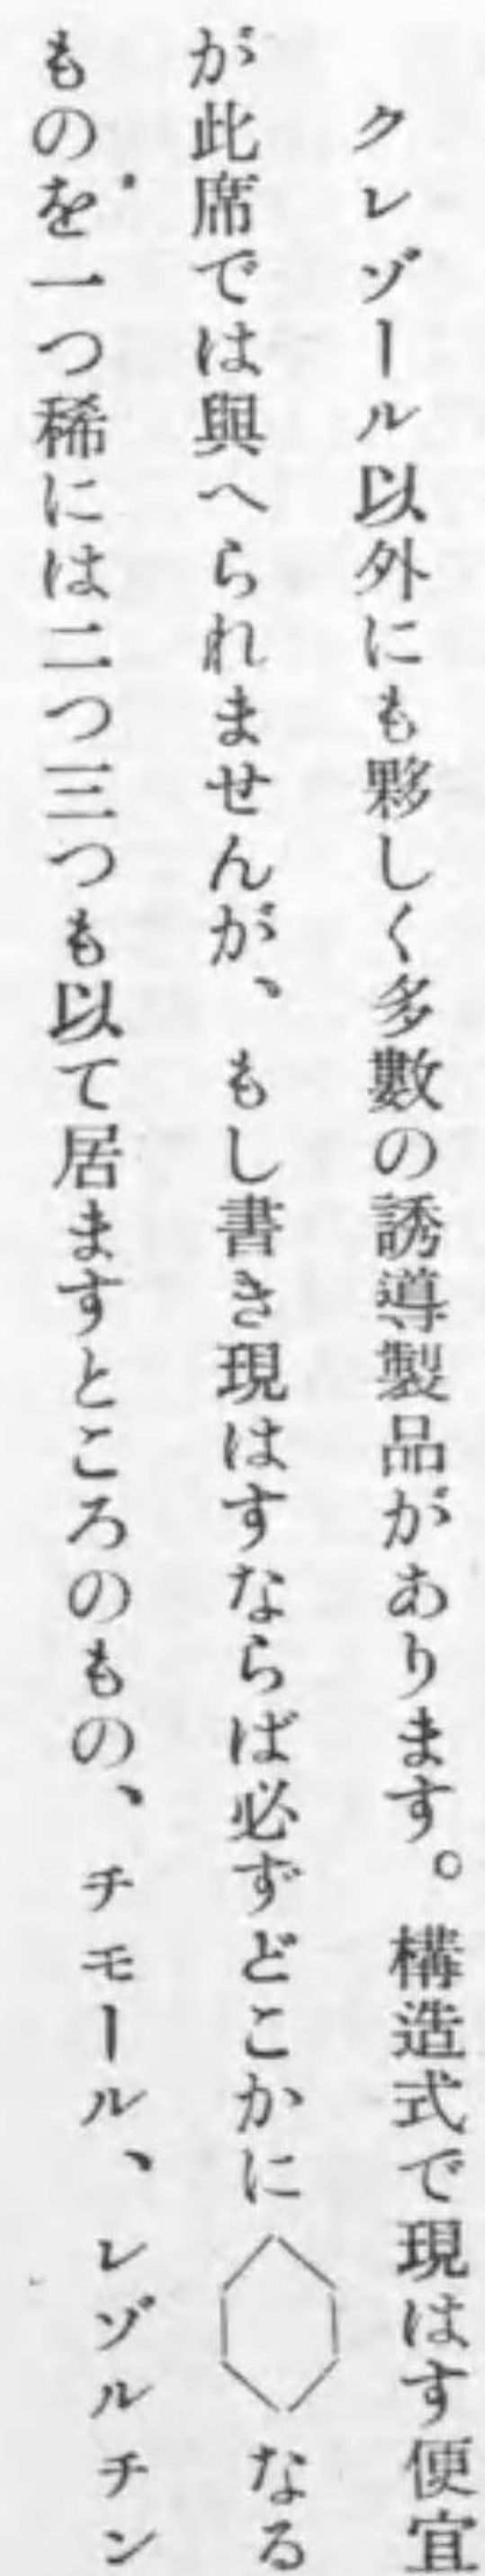 クレゾール以外にも夥しく多數の誘導製品があります。構造式で現はす便宜
が此席では與へられませんが、もし書き現はすならば必ずどこかに⬡なる
ものを一つ稀には二つ三つも以て居ますところのもの、チモール、レゾルチン